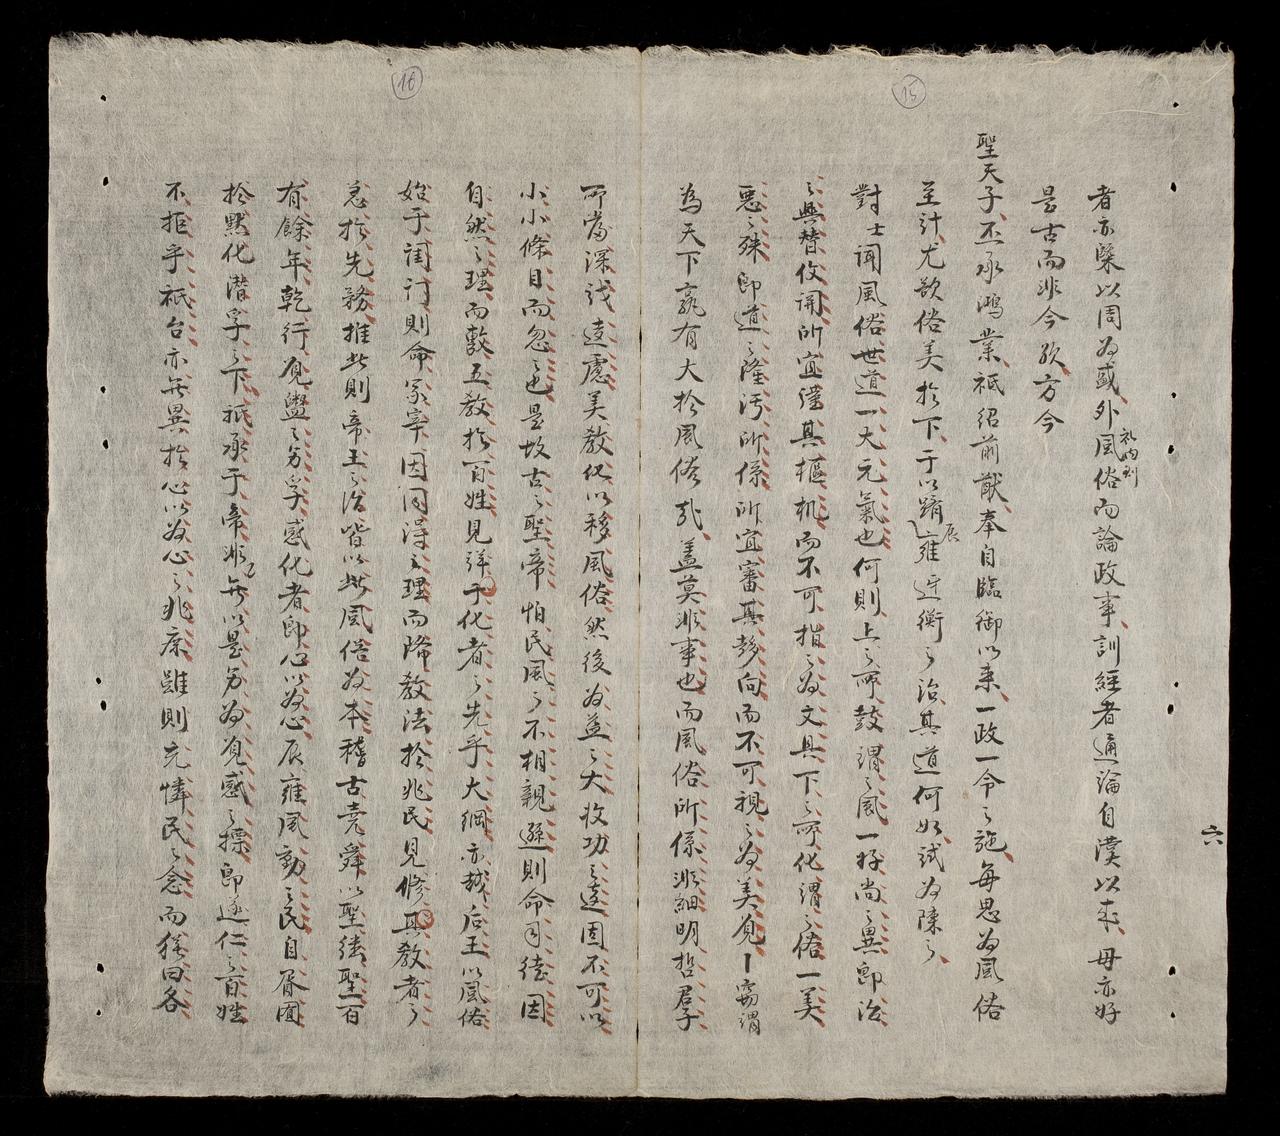 15
者亦槩以周為盛外風俗而論政事訓經者通論自漢以來毋亦好
是古而非今欤方今
聖天子丕承鴻業祇紹前猷奉自臨御以来一政一令之施每思為風俗
至計尤欲俗美於下于以躋雍迓衡之治其道何如試為陳之
辰
對士聞風俗世道一大元氣也何則上之所鼓謂之風一好尚之異即治
之興替攸関所宜謹其樞机而不可指之為文具下之所化謂之俗一美
惡之殊即道之隆污所係所宜審其影向而不可視之為美覌窃謂
為天下孰有大於風俗哉盖莫非事也而風俗所係非細明哲群
六
16
所當深謀遠慮美教化以移風俗然後為益之大收功之遠固不可以
小小條目而忽之也是故古之聖帝怕民風之不相親遜則命司徒因
自然之理而敷五教於百姓見詳于化者之先乎大綱亦越后王以風俗
始于闺门則命冢宰因同得之理而降教法於兆民見修其教者之
急於先務推此則帝王之治皆以此風俗為本稽古堯舜以聖德聖百
有餘年乾行覌盥之剪孚感化者即心以為心辰雍風動之民自胥囿
於默化潜孚之下祇承于帝非無以是剪為覌感之標即遂仁之百姓
不拒乎祇台亦無異於心以為心之兆康雖則克憐民之念而猶曰各